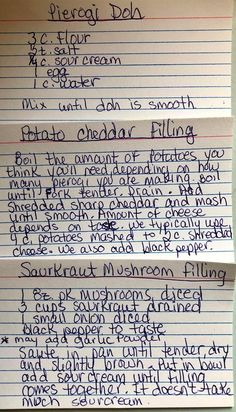 Pierogi Doh
3 c. flour
3 t. salt
1 egg
1 c. water
Mix until doh is smooth
Potato cheddar Filling
Boil the amount of potatoes you
think you'll need, depending on how
many pierogi you are making boil
until fork tender. Drain. Add
Shredded sharp cheddar and mash
until smooth. Amount of cheese
depends on taste. we typically use
4 c. potatoes mashed to 2c shredded
cheese. we also add black pepper.
Saurkraut Mushroom filling
1 8z. pk mushrooms, diced
3 cups saurkraut drained
1 small onion diced
black pepper to taste
* may add garlic powder
Saute in pan until tender, dry
and slightly brown. Put in bowl
add sour cream until filling
comes together. It doesn't take
much sourcream